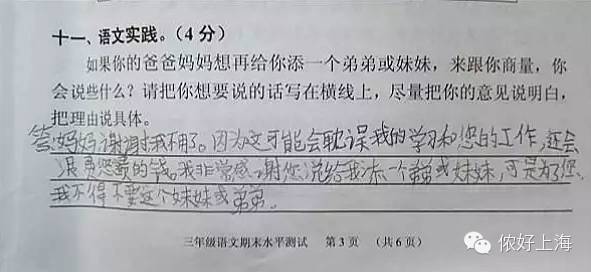 十一、语文实践。(4分)
如果你的爸爸妈妈想再给你添一个弟弟或妹妹，来跟你商量，你
会说些什么？请把你想要说的话写在横线上，尽量把你的意见说明白，
把理由说具体。
答：妈妈谢谢我不用了。因为这可能会耽误我的学习和您的工作，还会
浪费您的钱。我非常感谢您说给我添一个弟弟或妹妹，可是为了您，
我不得不要这个妹妹或弟弟。
三年级语文期末水平测试 第3页 (共6页)
侬好上海